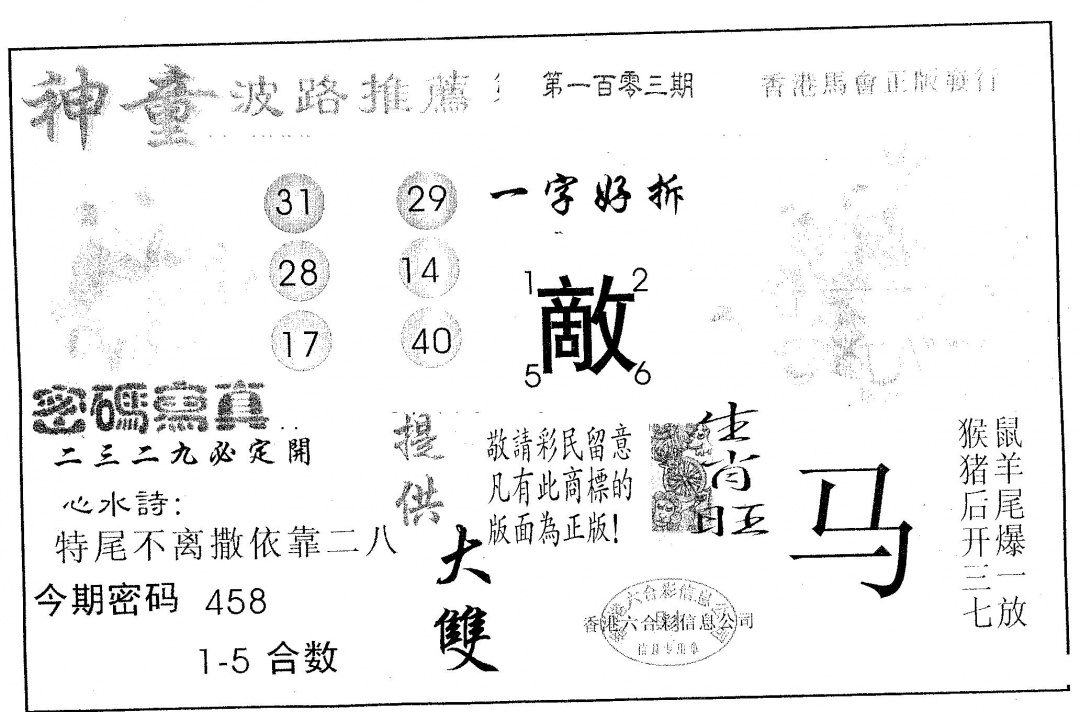 神童波路推薦 第一百零三期 香港馬會正版發行
31 29 一字好拆
28 14
17 40
1 2
敵
5 6
密碼寫真
二三二九必定開
心水詩:
特尾不离撒依靠二八
今期密码 458
1-5 合数
提供
大雙
敬請彩民留意
凡有此商標的
版面為正版!
生肖旺
马
鼠羊尾爆一放
猴猪后开三七
香港六合彩信息公司